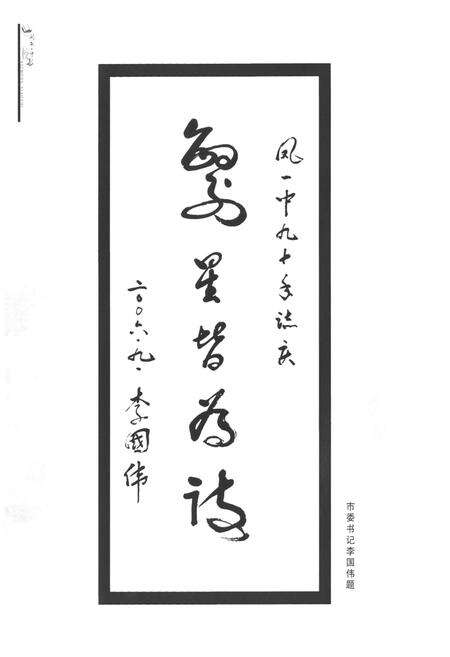 凤一中九十年誌庆
繁星皆为诗
二〇〇六.九.
李國伟
市委书记李国伟题